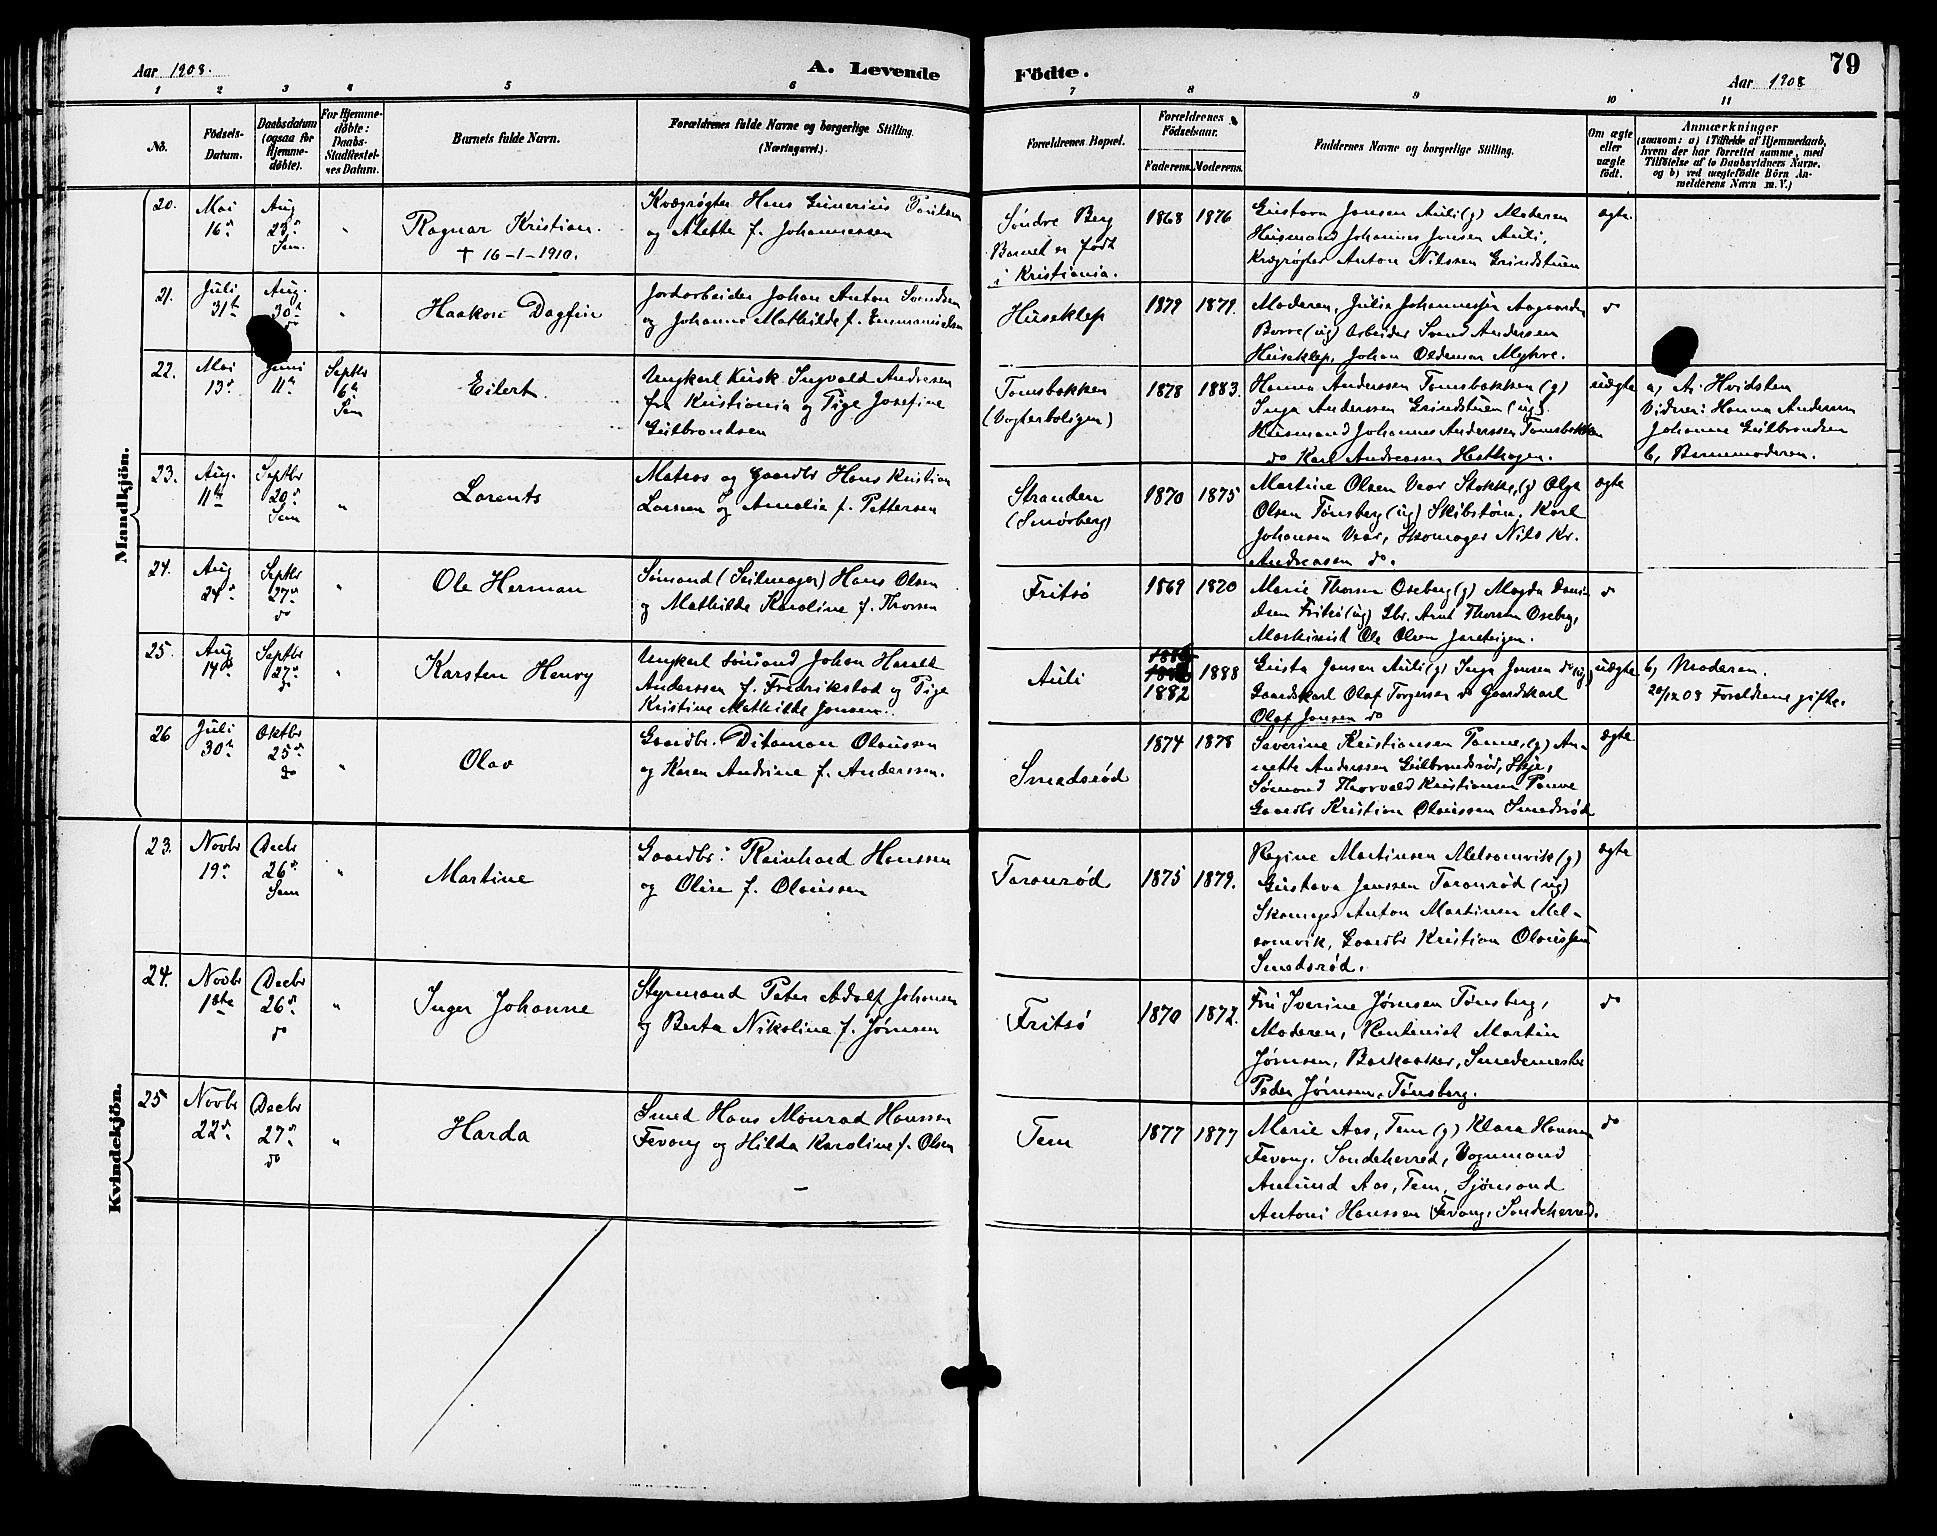 Aar 1908.
A. Levende
Födte.
79
Aar 1908
1 2 3 4 5 6 7 8 9 10 11
No.
Födsels-
Datum.
Daabsdatum
(ogsaa for
Hjemme-
döbte).
For Hjemme-
döbte:
Daabs-
Stadfæstel-
ses Datum.
Barnets fulde Navn.
Forældrenes fulde Navne og borgerlige Stilling.
(Næringsvei.)
Forældrenes Bopæl.
Forældrenes
Födselsaar.
Faderens. Moderens.
Faddernes Navne og borgerlige Stilling.
Om ægte
eller
uægte
født.
Anmærkninger
(saasom: a) i Tilfælde af Hjemmedaab,
hvem der har forrettet samme, med
Tilföielse af to Daabsvidners Navne,
og b) ved uægtefödte Börn An-
melderens Navn m. V.)
Mandkjön.
20.
Mai
16de
Aug
23de
Sem.
"
Ragnar Kristian.
† 16-1-1910.
Kvægrøgter Hans Gunerius Paulsen
og Mette f. Johannessen
Søndre Berg
Barnet er født
i Kristiania.
1868 1876
Gustava Jensen Auli (g) Moderen
Husmand Johannes Jensen Auli,
Kvægrøgter Anton Nilssen Grindstuen
ægte.
21.
Juli
31te
Aug.
30te
do
"
Haakon Dagfin
Jordarbeider Johan Anton Svendsen
og Johanne Mathilde f. Emmanuelsen
Huseklep
1879 1879.
Moderen, Julie Johannessen Aagaarden
Borre (ug) Arbeider Svend Andersen
Huseklep, Johan Oldeman Myhre.
do
22.
Mai
13de
Juni
11te
Septbr
6te
Sem
Eilert.
Ungkarl Kusk Ingvald Andresen
fra Kristiania og Pige Josefine
Gulbrandsen
Tomsbakken
(Vogterboligen)
1878 1883.
Hanna Anderssen Tomsbakken (g)
Inga Anderssen Grindstuen (ug).
Husmand Johannes Anderssen Tomsbakken
do Karl Andreassen Hesthagen.
uægte
a, A. Hvidsten
Vidner: Hanna Andersen
Johanne Gulbrandsen
b, Barnemoderen.
23.
Aug.
11te
Septbr
20de
Sem
"
Lorents
Matros og Gaardbr Hans Kristian
Larsen og Amalie f. Pettersen
Stranden
(Smørberg)
1870 1875
Martine Olsen Vear Stokke, (g) Olga
Olsen Tønsberg (ug) Skibstøm. Karl
Johansen Vear, Skomager Nils Kr.
Andreasen do.
ægte
24.
Aug
24de
Septbr
27de
do
"
Ole Herman
Sømand (Seilmager) Hans Olsen
og Mathilde Karoline f. Thorsen
Fritsø
1869 1870
Marie Thorsen Oseberg (g) Magda Davi-
dsen Fritsø (ug) Gbr. Arnt Thorsen Oseberg,
Maskinist Ole Olsen Jareteigen.
do
25.
Aug
14de
Septbr
27de
do
"
Karsten Henry
Ungkarl Sømand Johan Harald
Anderssen f. Fredrikstad og Pige
Kristine Mathilde Jensen.
Auli
1882
1888
Gusta Jensen Auli (g) Inga Jensen do (ug)
Gaardskarl Olaf Torgersen do Gaardkarl
Olaf Jensen do
uægte
b, Moderen.
20/12 08 Forældrene gifte.
26
Juli
30te
Oktbr
25de
do
"
Olav
Gaardbr. Ditaman Olaussen
og Karen Andrine f. Anderssen.
Smedsrød
1874 1878
Severine Kristiansen Tanne, (g) An-
nette Anderssen Gulbrandsrød, Skje,
Sømand Thorvald Kristiansen Tanne
Gaardbr Kristian Olaussen Smedsrød
ægte
Kvindekjön.
23.
Novbr
19de
Decbr
26de
Sem
"
Martine
Gaardbr: Reinhard Hanssen
og Olise f. Olaussen
Taranrød
1875 1879.
Regine Martinsen Melsomvik (g)
Gustava Janssen Taranrød (ug)
Skomager Anton Martinsen Mel-
somvik, Gaardbr Kristian Olaussen
Smedsrød.
ægte
24.
Novbr
1ste
Decbr
26de
do
"
Inger Johanne
Styrmand Peter Adolf Johansen
og Berta Nikoline f. Jørnsen
Fritsø
1870 1872.
Fru Iverine Jørnsen Tønsberg,
Moderen, Rentenist Martin
Jørnsen, Barkaaker, Smedemester
Peder Jørnsen, Tønsberg.
do
25
Novbr
22de
Decbr
27de
do
"
Harda
Smed Hans Monrad Hanssen
Fevang og Hilda Karoline f. Olsen
Tem
1877 1877
Marie Aas, Tem (g) Klara Hanssen
Fevang. Sandeherred, Vognmand
Amund Aas, Tem, Sjømand
Antoni Hanssen Fevang, Sandeherred.
do